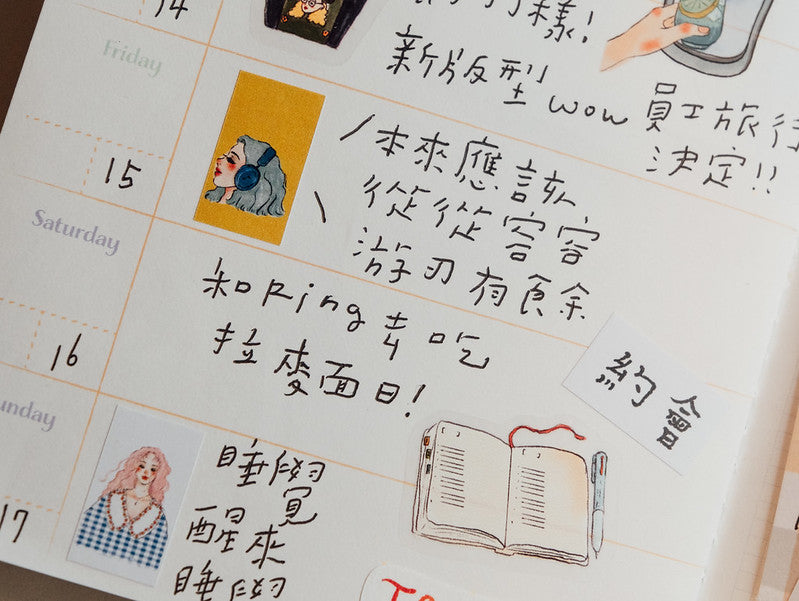 14
樣!
新版型 wow
員工旅行
決定!!
Friday
15
本來應該
從從容容
游刃有餘
Saturday
16
和King去吃
拉麥面日!
約會
unday
17
睡覺
醒來
睡覺